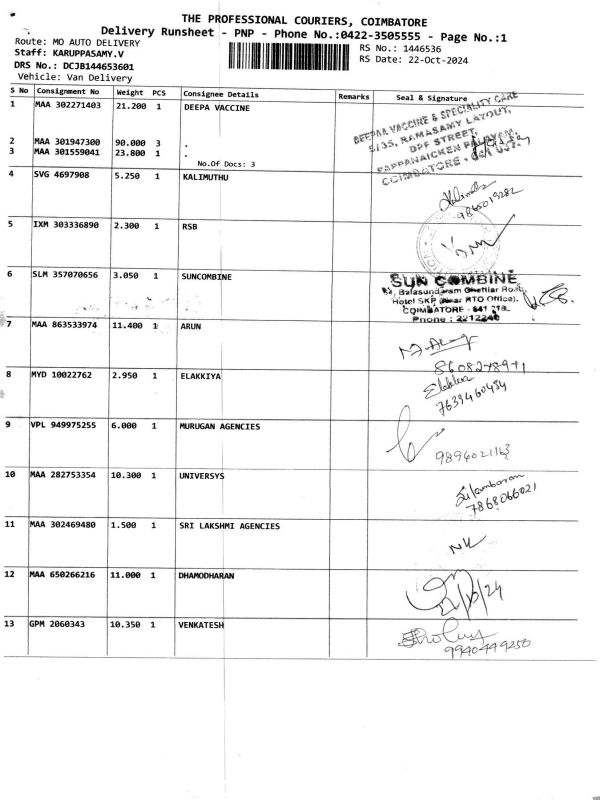 THE PROFESSIONAL COURIERS, COIMBATORE
Delivery Runsheet - PNP - Phone No.:0422-3505555 - Page No.:1
Route: MO AUTO DELIVERY
RS No.: 1446536
Staff: KARUPPASAMY.V
RS Date: 22-Oct-2024
DRS No.: DCJB144653601
Vehicle: Van Delivery
S No Consignment No Weight PCS Consignee Details Remarks Seal & Signature
1 MAA 302271403 21.200 1 DEEPA VACCINE
DEEPAA VACCINE & SPECIALITY CARE
5/35, RAMASAMY LAYOUT,
DPF STREET,
PAPPANAICKEN PALAYAM,
COIMBATORE -
2 MAA 301947300 90.000 3 .
3 MAA 301559041 23.800 1 .
No.Of Docs: 3
4 SVG 4697908 5.250 1 KALIMUTHU
9865019282
5 IXM 303336890 2.300 1 RSB
6 SLM 357070656 3.050 1 SUNCOMBINE
SUN COMBINE
Balasundaram Chettiar Road,
Hotel SKP (Near RTO Office),
COIMBATORE - 641 018.
Phone : 2212246
7 MAA 863533974 11.400 1 ARUN
8608278971
8 MYD 10022762 2.950 1 ELAKKIYA
Elakkiya
7639460434
9 VPL 949975255 6.000 1 MURUGAN AGENCIES
9894021163
10 MAA 282753354 10.300 1 UNIVERSYS
7868066021
11 MAA 302469480 1.500 1 SRI LAKSHMI AGENCIES
NK
12 MAA 650266216 11.000 1 DHAMODHARAN
13 GPM 2060343 10.350 1 VENKATESH
9940449250